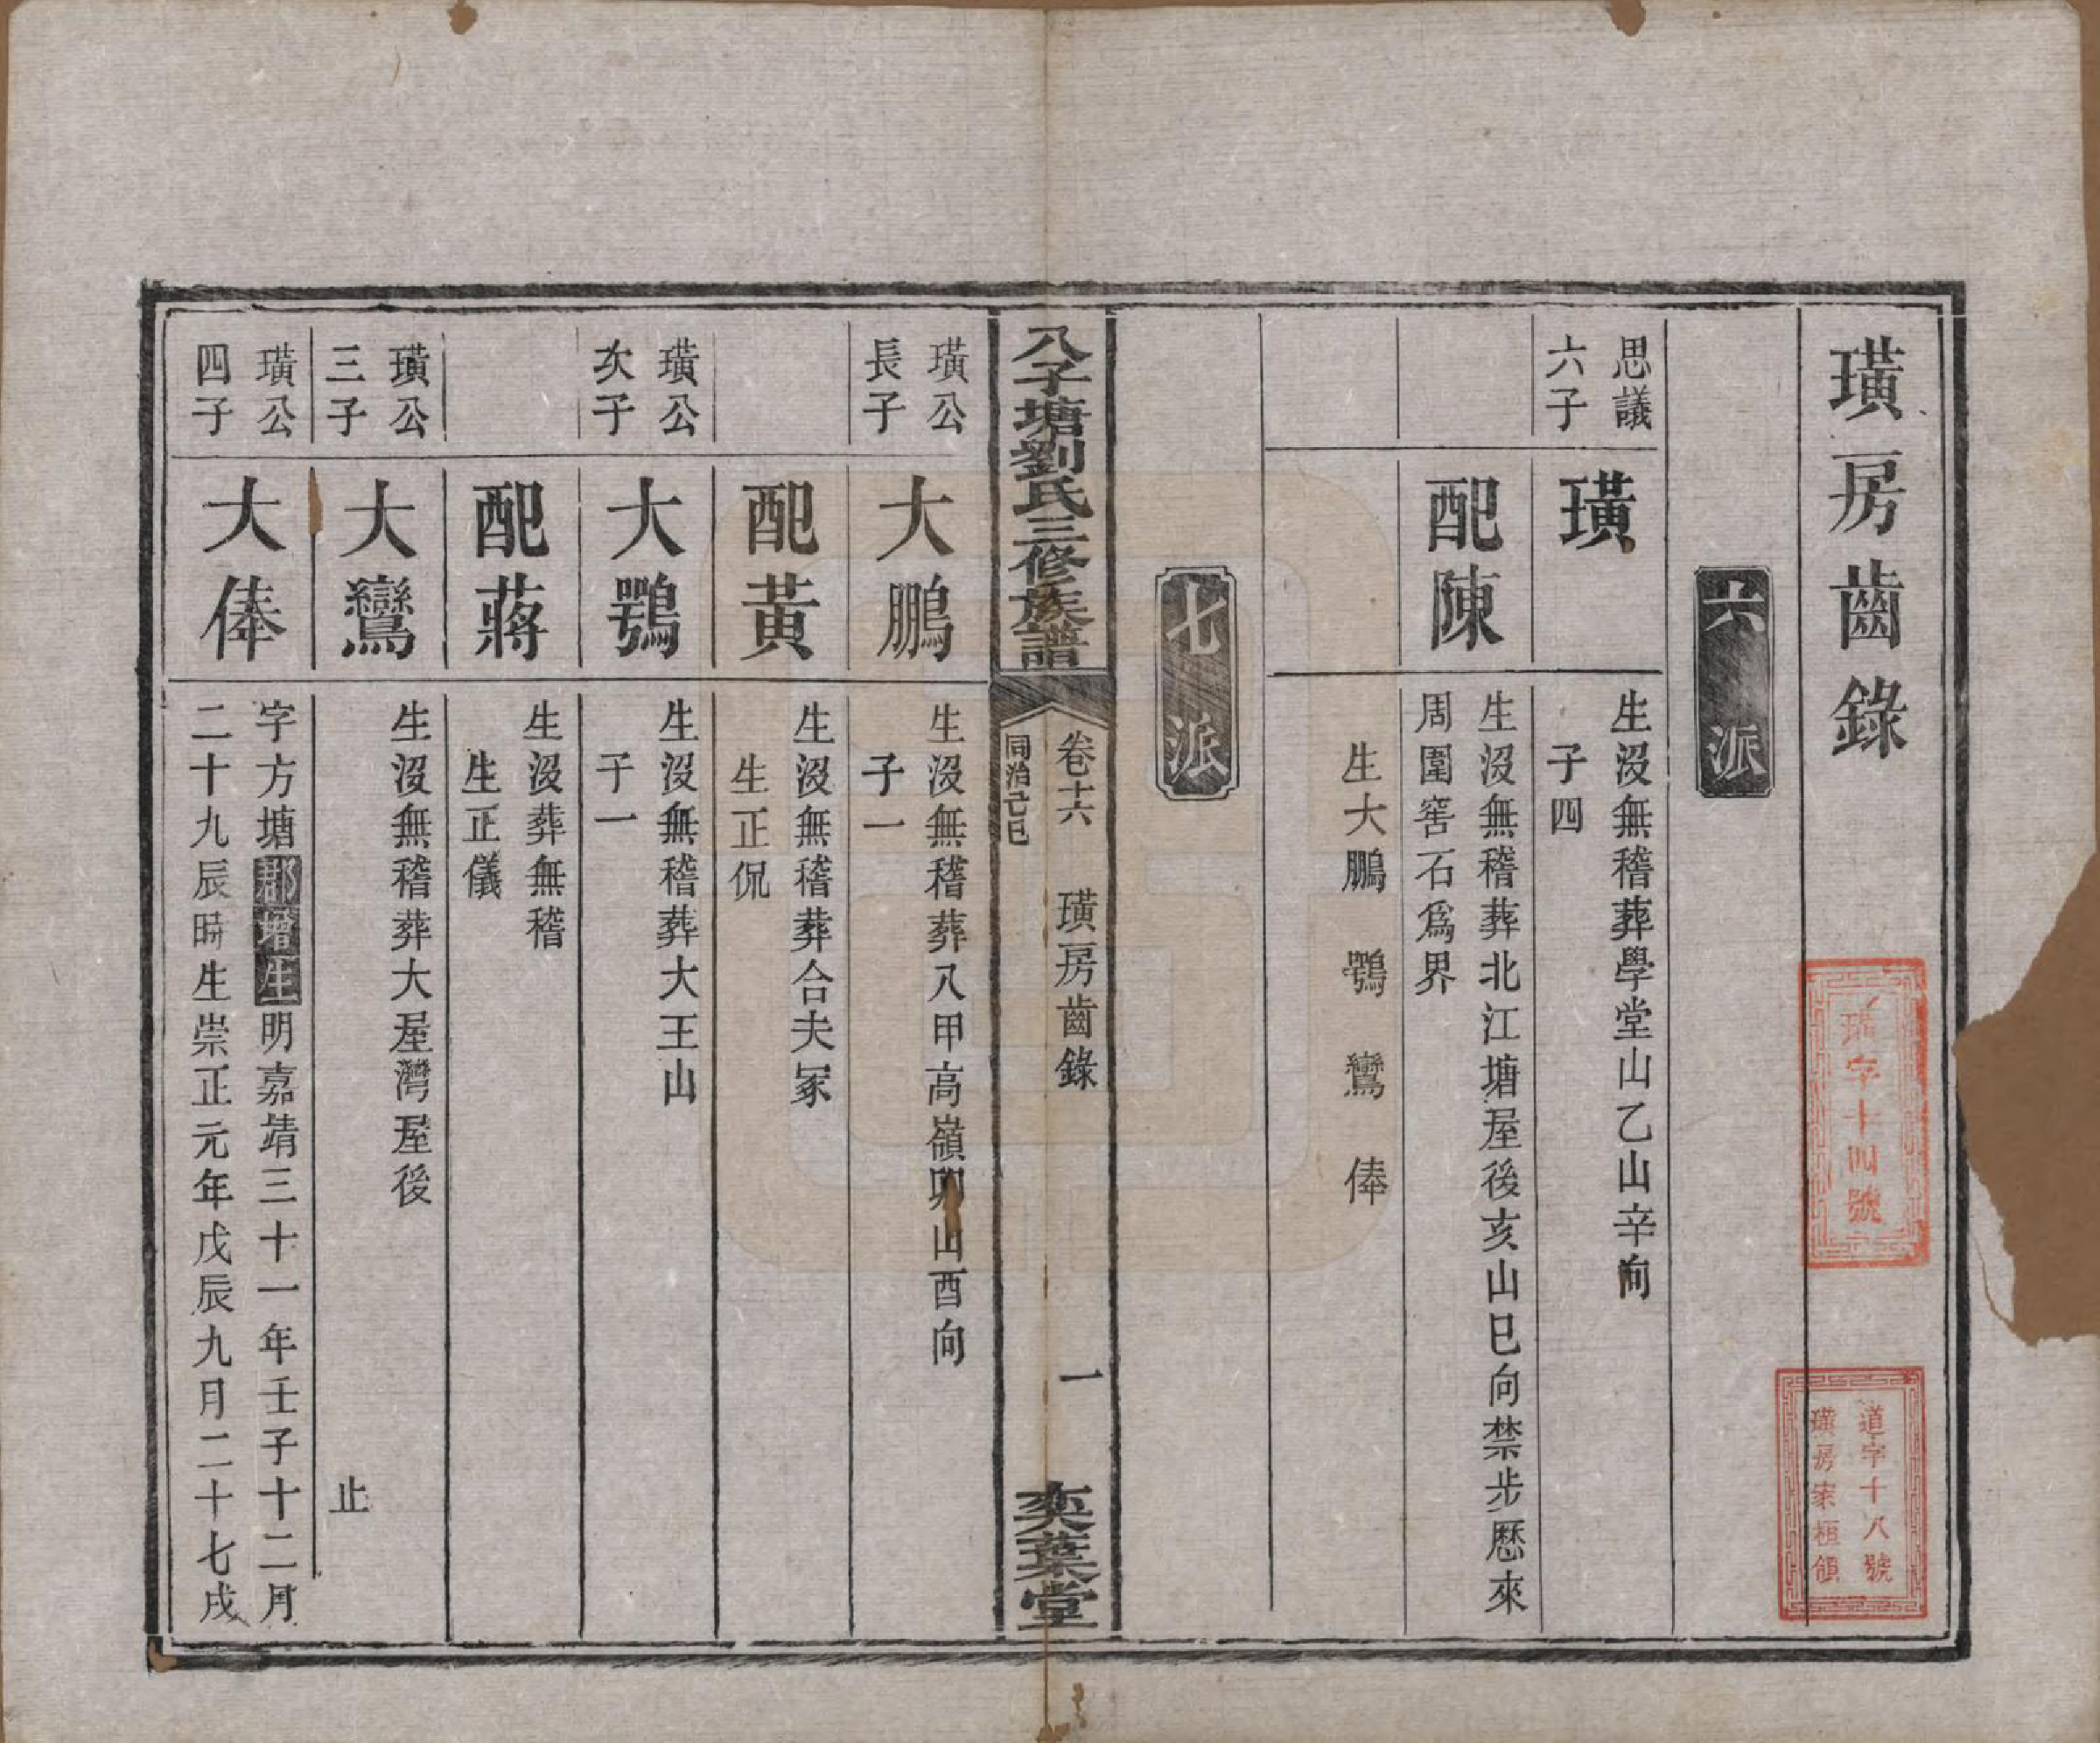 璜房齒錄
瑞字十四號
道字十八號
璜房家桓領
六派
思議
六子
璜
生沒無稽葬學堂山乙山辛向
子四
配陳
生沒無稽葬北江塘屋後亥山巳向禁步歷來
周圍窖石爲界
生大鵬 鶚 鸞 俸
七派
八子塘劉氏三修族譜
卷十六 璜房齒錄 一
同治己巳
奕葉堂
璜公
長子
大鵬
生沒無稽葬八甲高嶺卯山酉向
子一
配黃
生沒無稽葬合夫冢
生正侃
璜公
次子
大鶚
生沒無稽葬大王山
子一
配蔣
生沒葬無稽
生正儀
璜公
三子
大鸞
生沒無稽葬大屋灣屋後
止
璜公
四子
大俸
字方塘郡增生明嘉靖三十一年壬子十二月
二十九辰時生崇正元年戊辰九月二十七戌